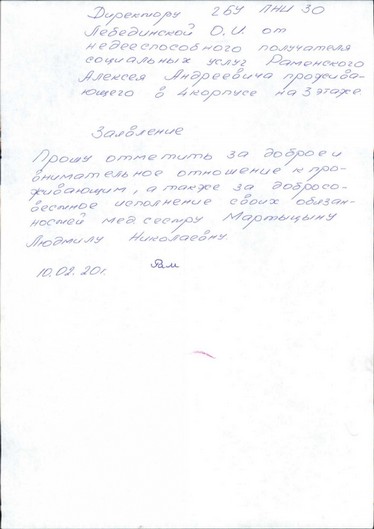 Директору ГБУ ПНИ 30
Лебединской О.И. от
недееспособного получателя
социальных услуг Раменского
Алексея Андреевича прожива-
ющего в 4 корпусе на 3 этаже.
Заявление
Прошу отметить за доброе и
внимательное отношение к про-
живающим, а также за добросо-
вестное исполнение своих обязан-
ностей медсестру Мартыцыну
Людмилу Николаевну.
10.02.20г. Рам